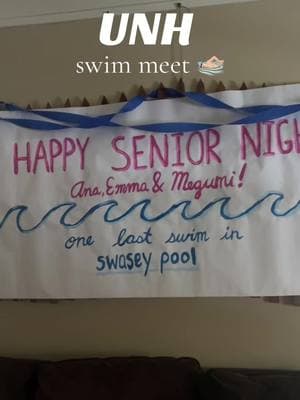 UNH
swim meet 🏊🏻
HAPPY SENIOR NIG
Ana, Emma & Megumi!
one last swim in
swasey pool